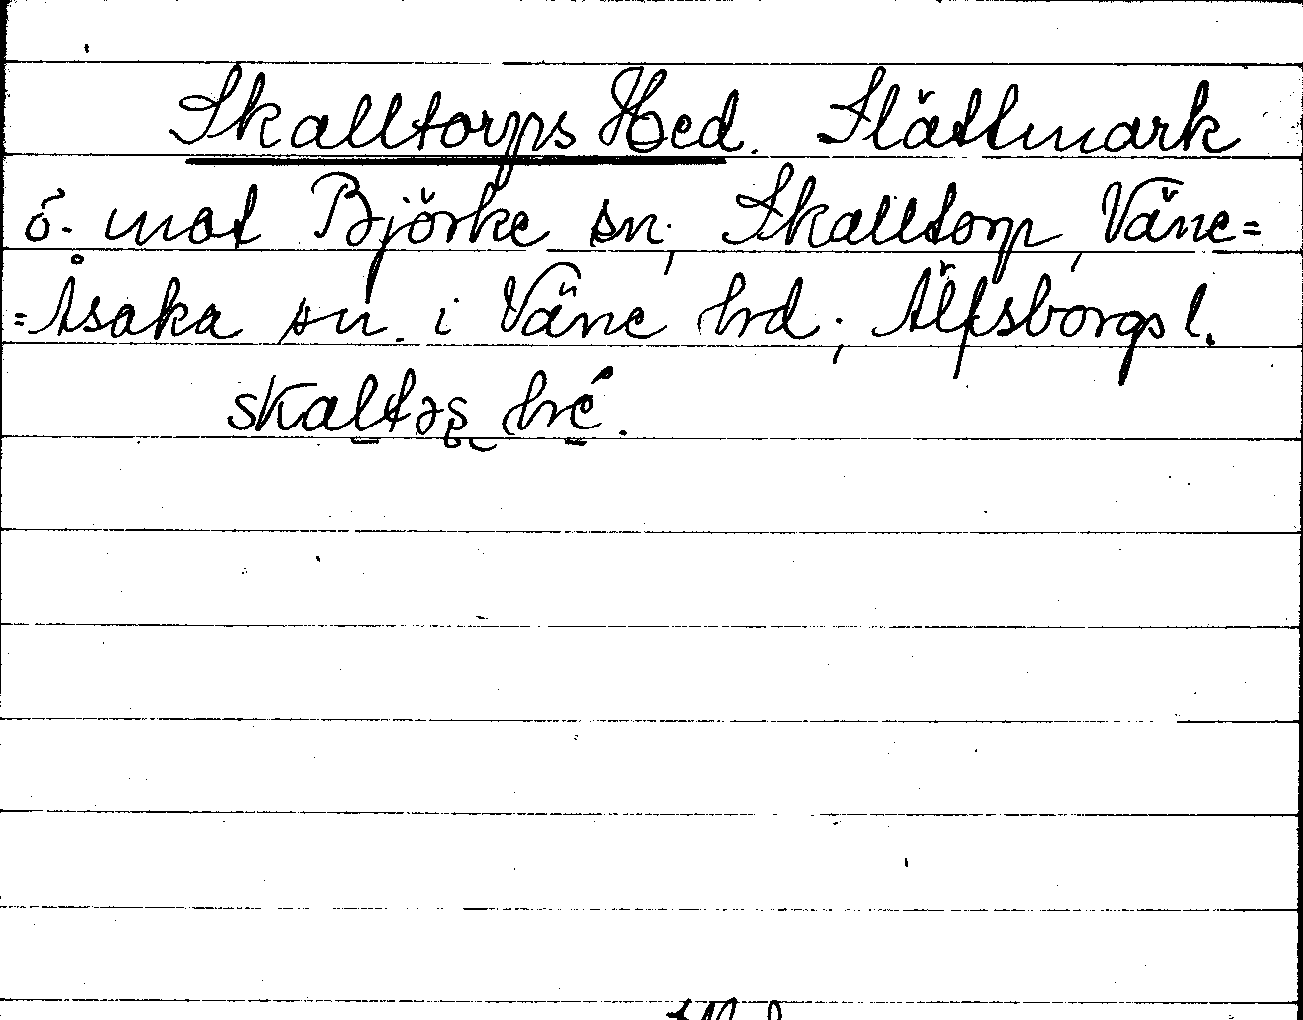 Skalltorps Hed. Slättmark
ö. mot Björke sn, Skalltorp, Väne=
=Åsaka sn. i Väne hd; Älfsborgs l.
skaltəs he.